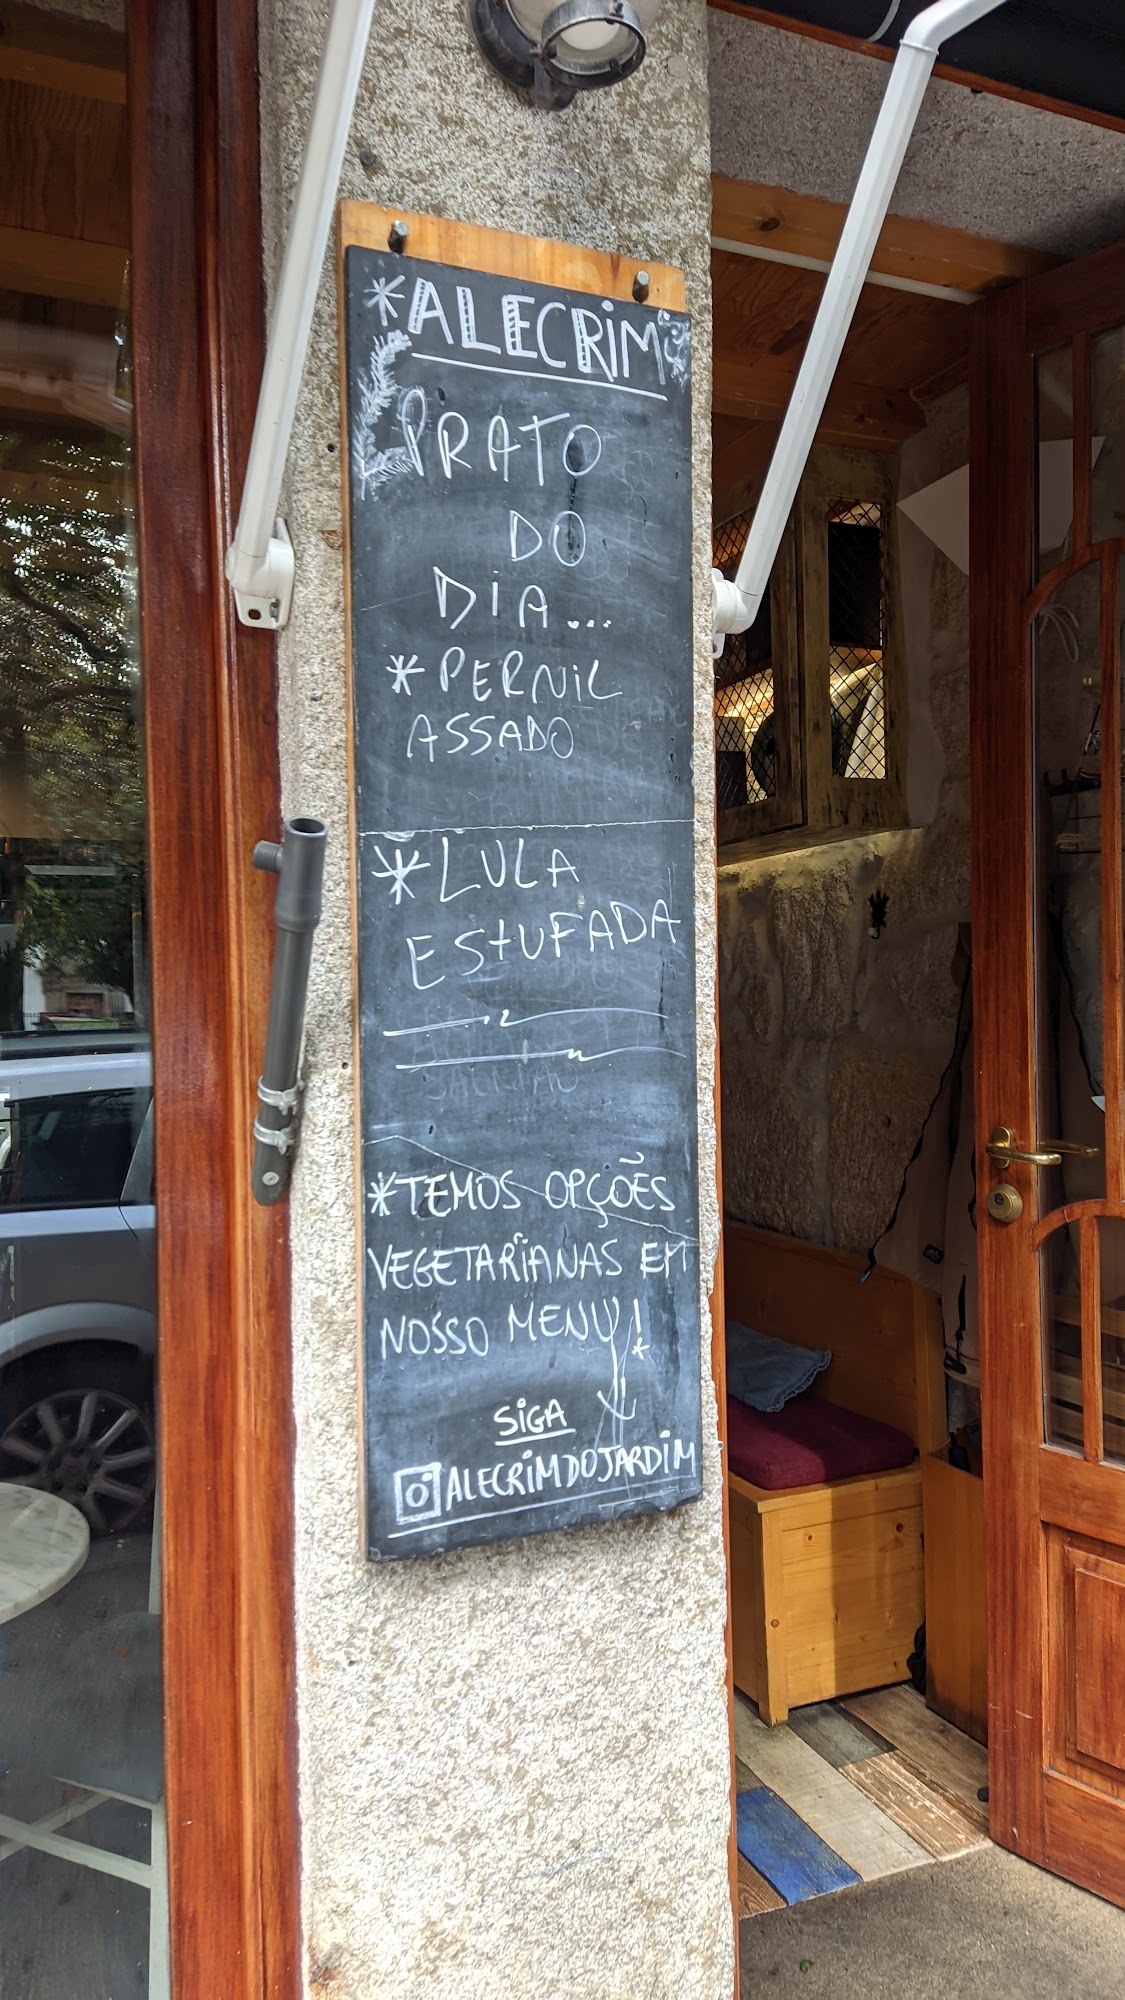 *ALECRIM
PRATO
DO
DIA...
*PERNIL
ASSADO
*LULA
ESTUFADA
*TEMOS OPÇÕES
VEGETARIANAS EM
NOSSO MENU!
SIGA
ALECRIMDOJARDIM